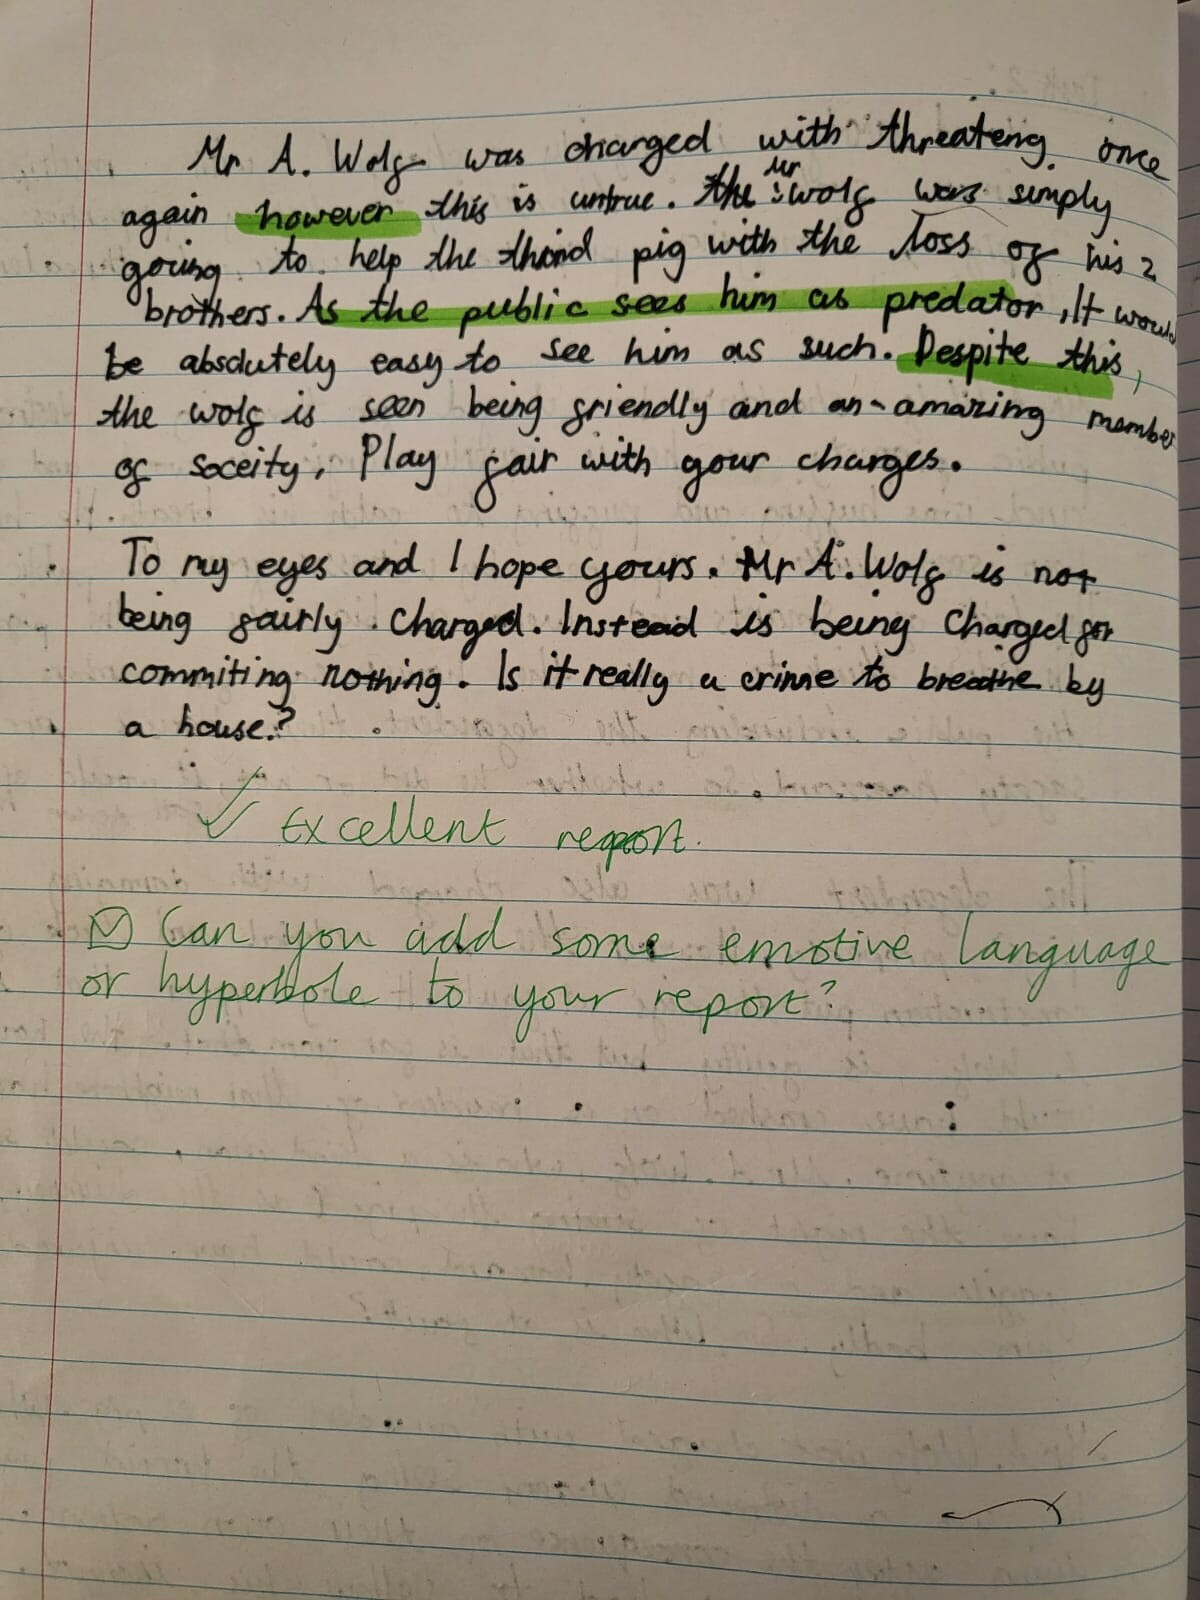 Mr A. Wolf was charged with threateng. once
again however this is untrue. the Mr wolf was simply
going to help the third pig with the loss of his 2
brothers. As the public sees him as predator, It would
be absolutely easy to see him as such. Despite this,
the wolf is seen being friendly and an amazing member
of soceity, Play fair with your charges.
To my eyes and I hope yours. Mr A. Wolf is not
being fairly charged. Instead is being charged for
commiting nothing. Is it really a crime to breathe by
a house?
✓ Excellent report.
☑ Can you add some emotive language
or hyperbole to your report?